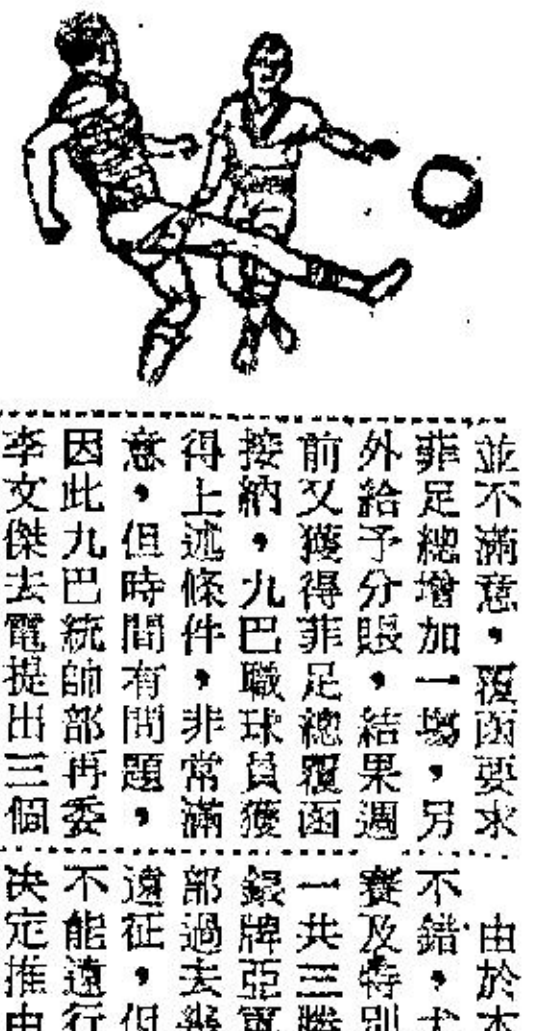 並不滿意，覆函要求
菲足總增加一場，另
外給予分賬，結果週
前又獲得菲足總覆函
接納，九巴職球員獲
得上述條件，非常滿
意，但時間有問題，
因此九巴統帥部再委
李文傑去電提出三個
由於
不錯，
賽及特別
一共三勝
銀牌亞軍
部過去幾
遠征，但
不能遠行
決定推由